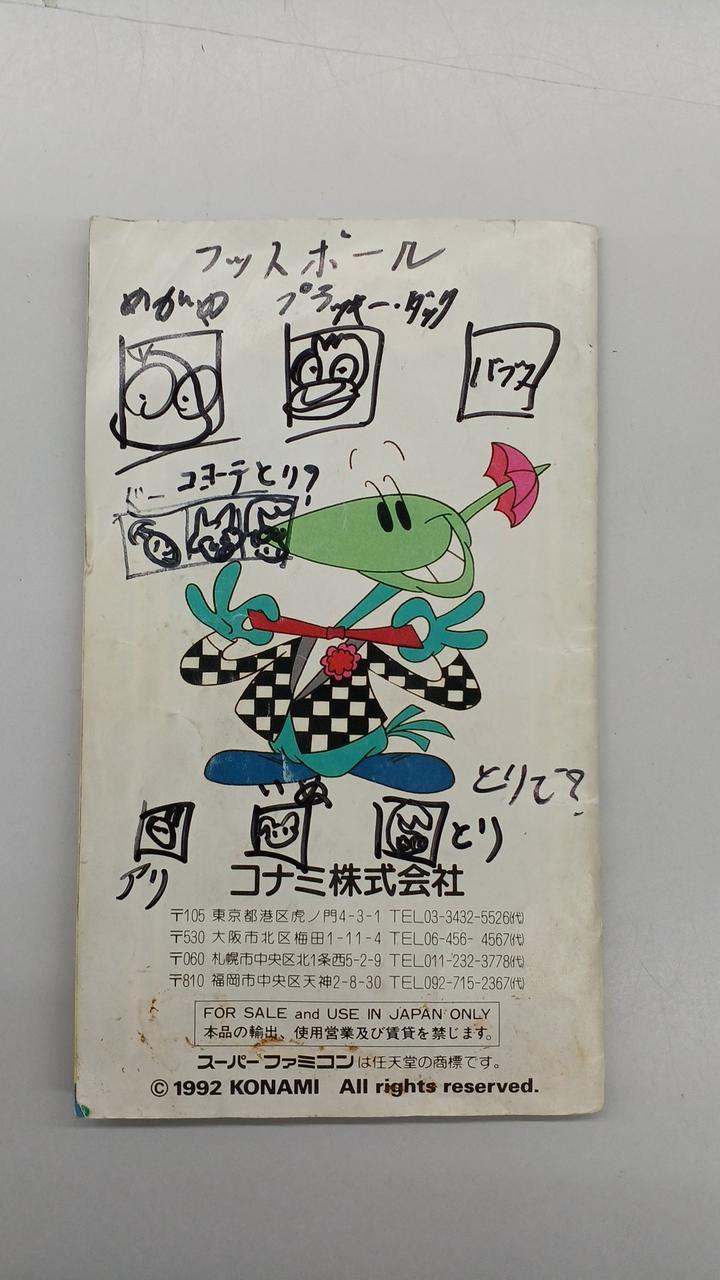 フットボール
プラッキー・ダック
バブス
コヨーテとり?
いぬ
とりで?
とり
アリ
コナミ株式会社
〒105 東京都港区虎ノ門4-3-1 TEL03-3432-5526㈹
〒530 大阪市北区梅田1-11-4 TEL06-456-4567㈹
〒060 札幌市中央区北1条西5-2-9 TEL011-232-3778㈹
〒810 福岡市中央区天神2-8-30 TEL092-715-2367㈹
FOR SALE and USE IN JAPAN ONLY
本品の輸出、使用営業及び賃貸を禁じます。
スーパーファミコンは任天堂の商標です。
© 1992 KONAMI All rights reserved.